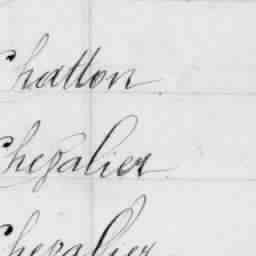 Chatton
Chevalier
Chevalier